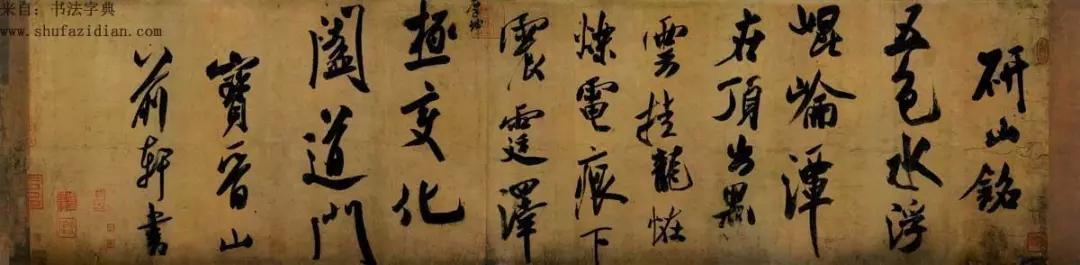 来自：书法字典
www.shufazidian.com
研山銘
五色水浮
崐崘潭
在頂出黑
雲挂龍恠
爍電痕下
震霆澤
厚
極變化
闔道門
寶晉山
前軒書